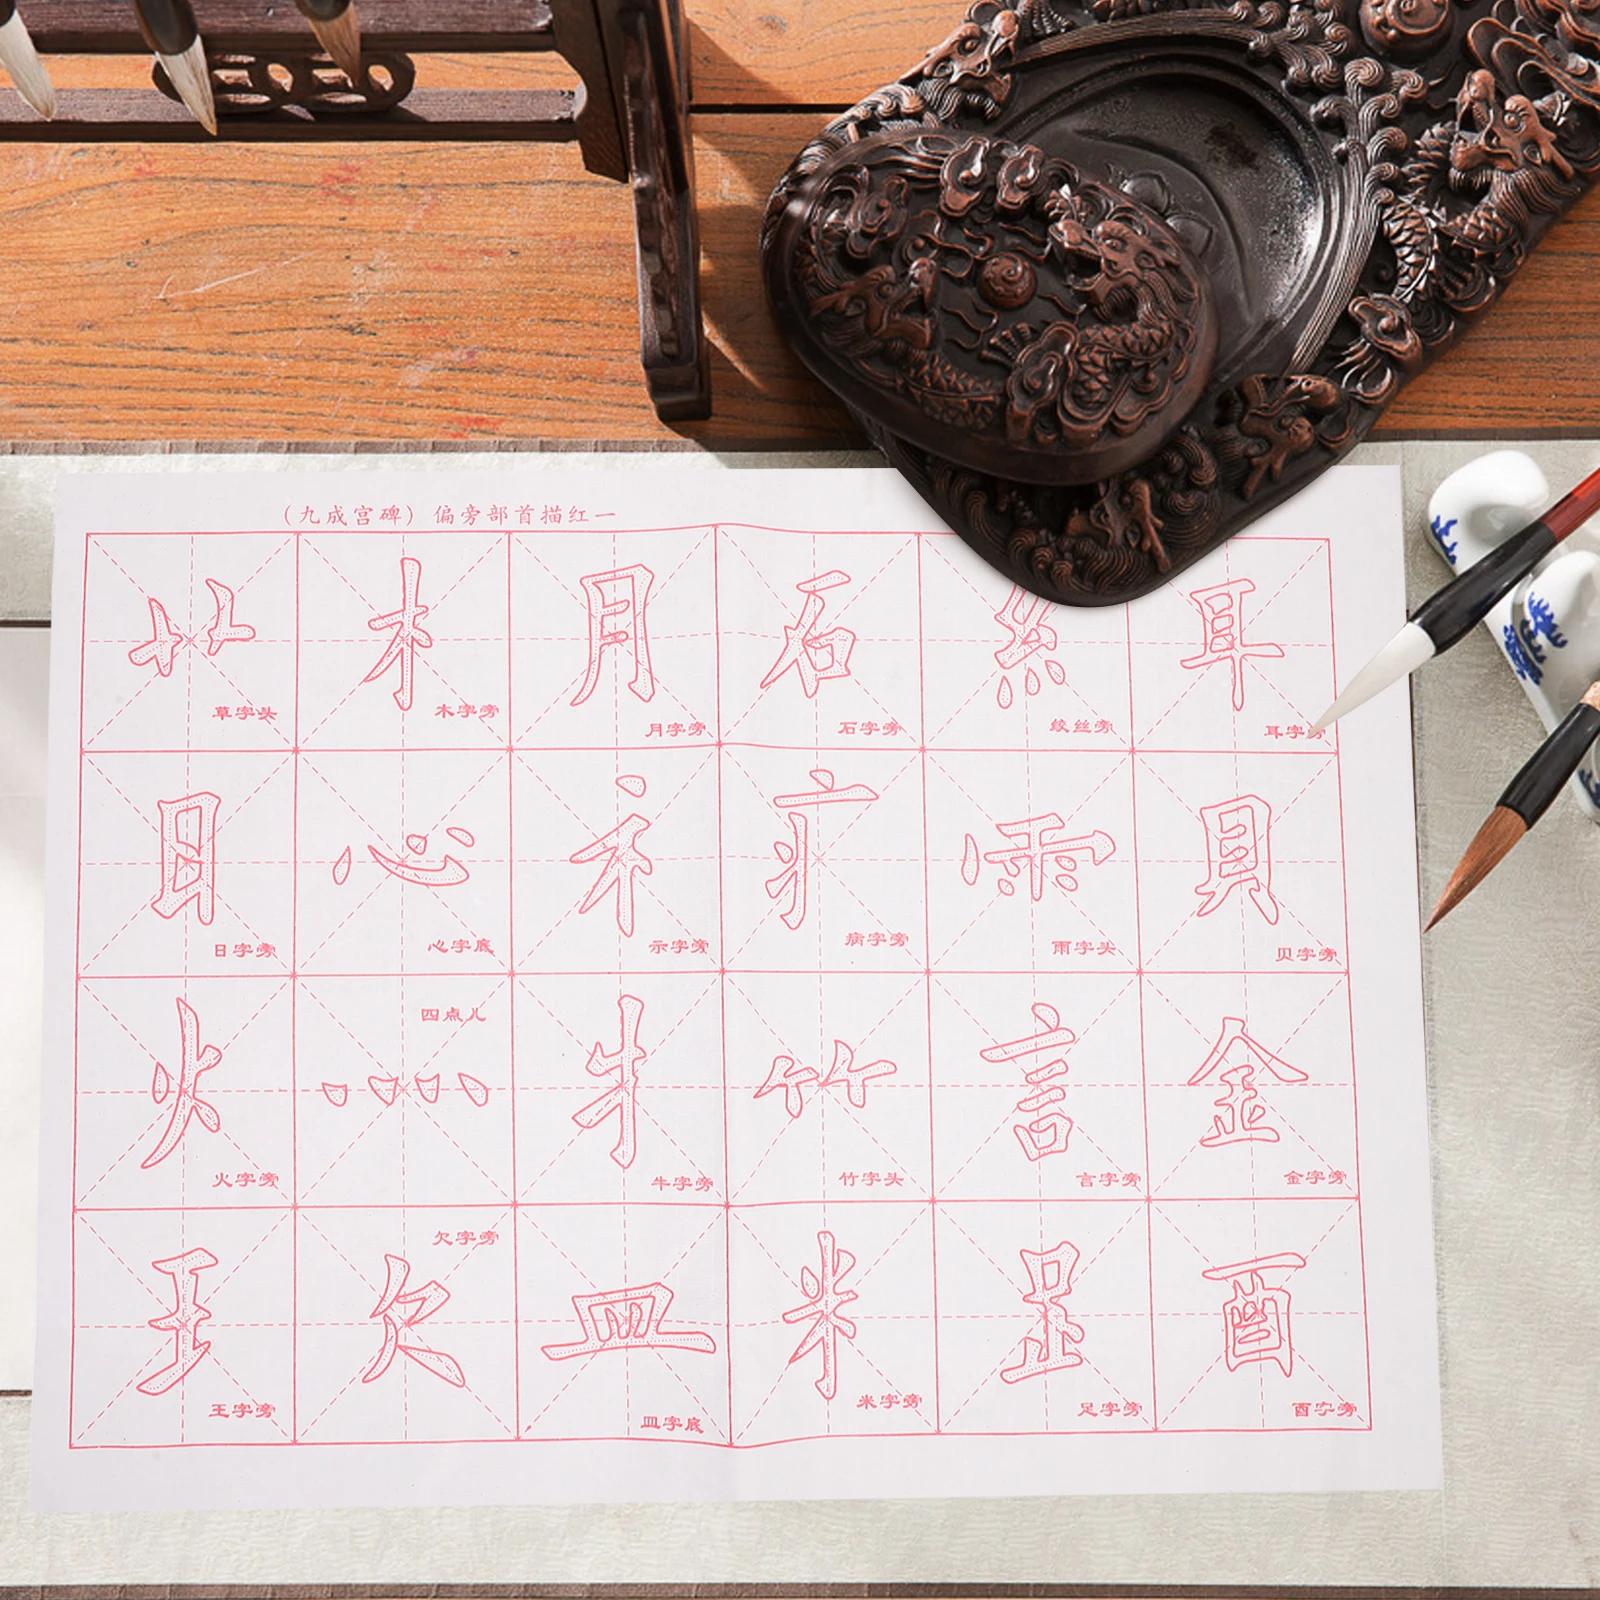 （九成宫碑）偏旁部首描红一
艹 木 月 石 糹 耳
草字头 木字旁 月字旁 石字旁 绞丝旁 耳字旁
日 心 礻 疒 雨 貝
日字旁 心字底 示字旁 病字旁 雨字头 贝字旁
火 灬 牜 𥫗 言 金
火字旁 四点儿 牛字旁 竹字头 言字旁 金字旁
王 欠 皿 米 𧾷 酉
王字旁 欠字旁 皿字底 米字旁 足字旁 酉字旁